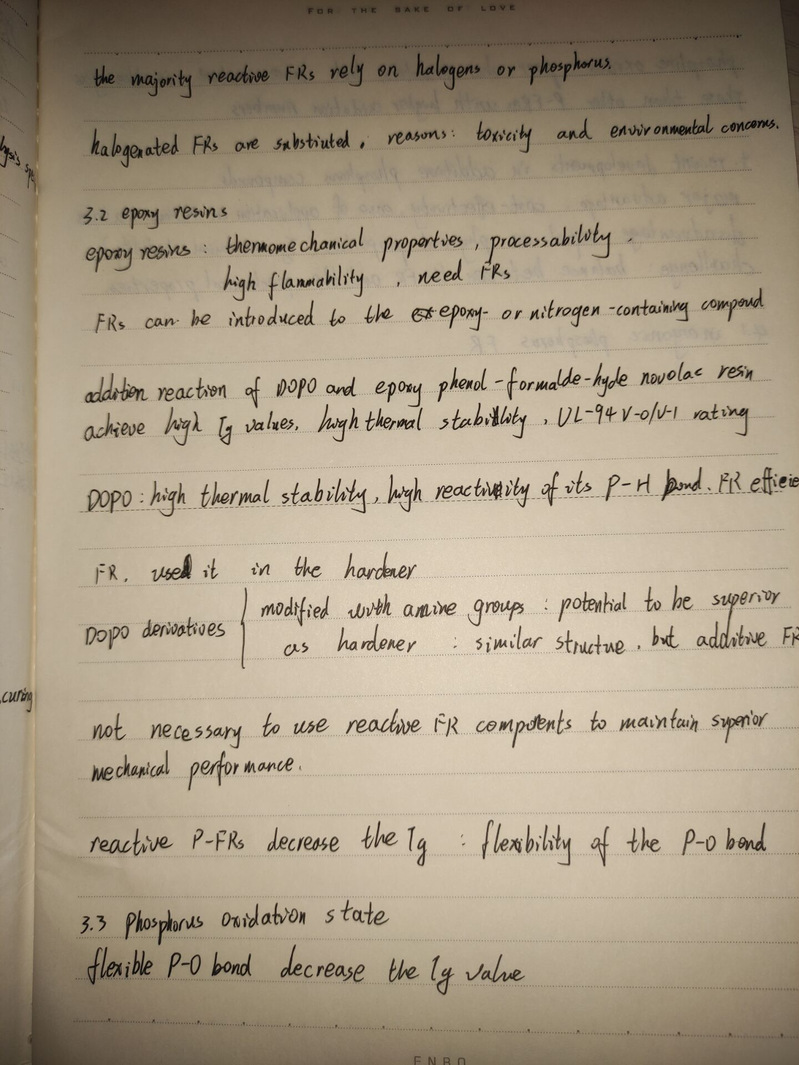 FOR THE SAKE OF LOVE
the majority reactive FRs rely on halogens or phosphorus.
halogenated FRs are substiuted, reasons: toxicity and environmental concerns.
3.2 epoxy resins
epoxy resins : thermomechanical properties, processability.
high flammability, need FRs
FRs can be introduced to the epoxy- or nitrogen-containing compoud
addition reaction of DOPO and epoxy phenol-formalde-hyde novolac resin
achieve high Tg values, high thermal stability, UL-94 V-0/V-1 rating
DOPO : high thermal stability, high reactivity of its P-H bond. FR efficie
FR. used it in the hardener
DOPO derivatives
modified with amine groups : potential to be superior
as hardener : similar structue, but additive FR
curing
not necessary to use reactive FR components to maintain superior
mechanical performance.
reactive P-FRs decrease the Tg : flexibility of the P-O bond
3.3 Phosphorus oxidation state
flexible P-O bond decrease the Tg value
ENBO